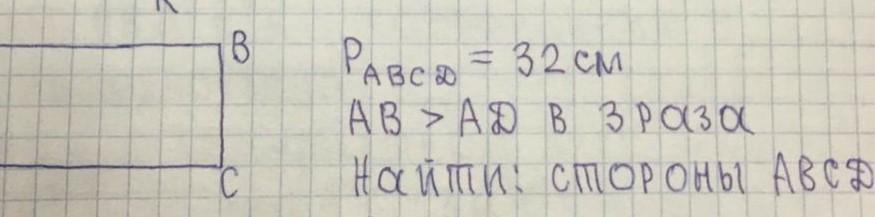 B
P ABCD = 32 см
AB > AD в 3 раза
C
Найти: стороны ABCD